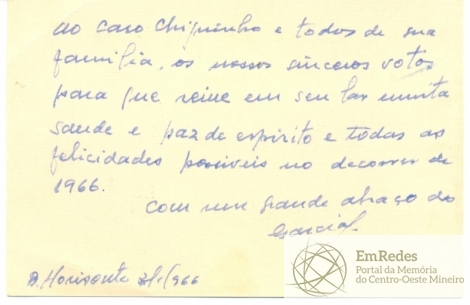 ao caro Chiquinho e todos de sua
familia, os nossos sinceros votos
para que reine em seu lar muita
saude e paz de espirito e todas as
felicidades possiveis no decorrer de
1966.
Com um grande abraço do
B. Horizonte 966
EmRedes
Portal da Memória
do Centro-Oeste Mineiro